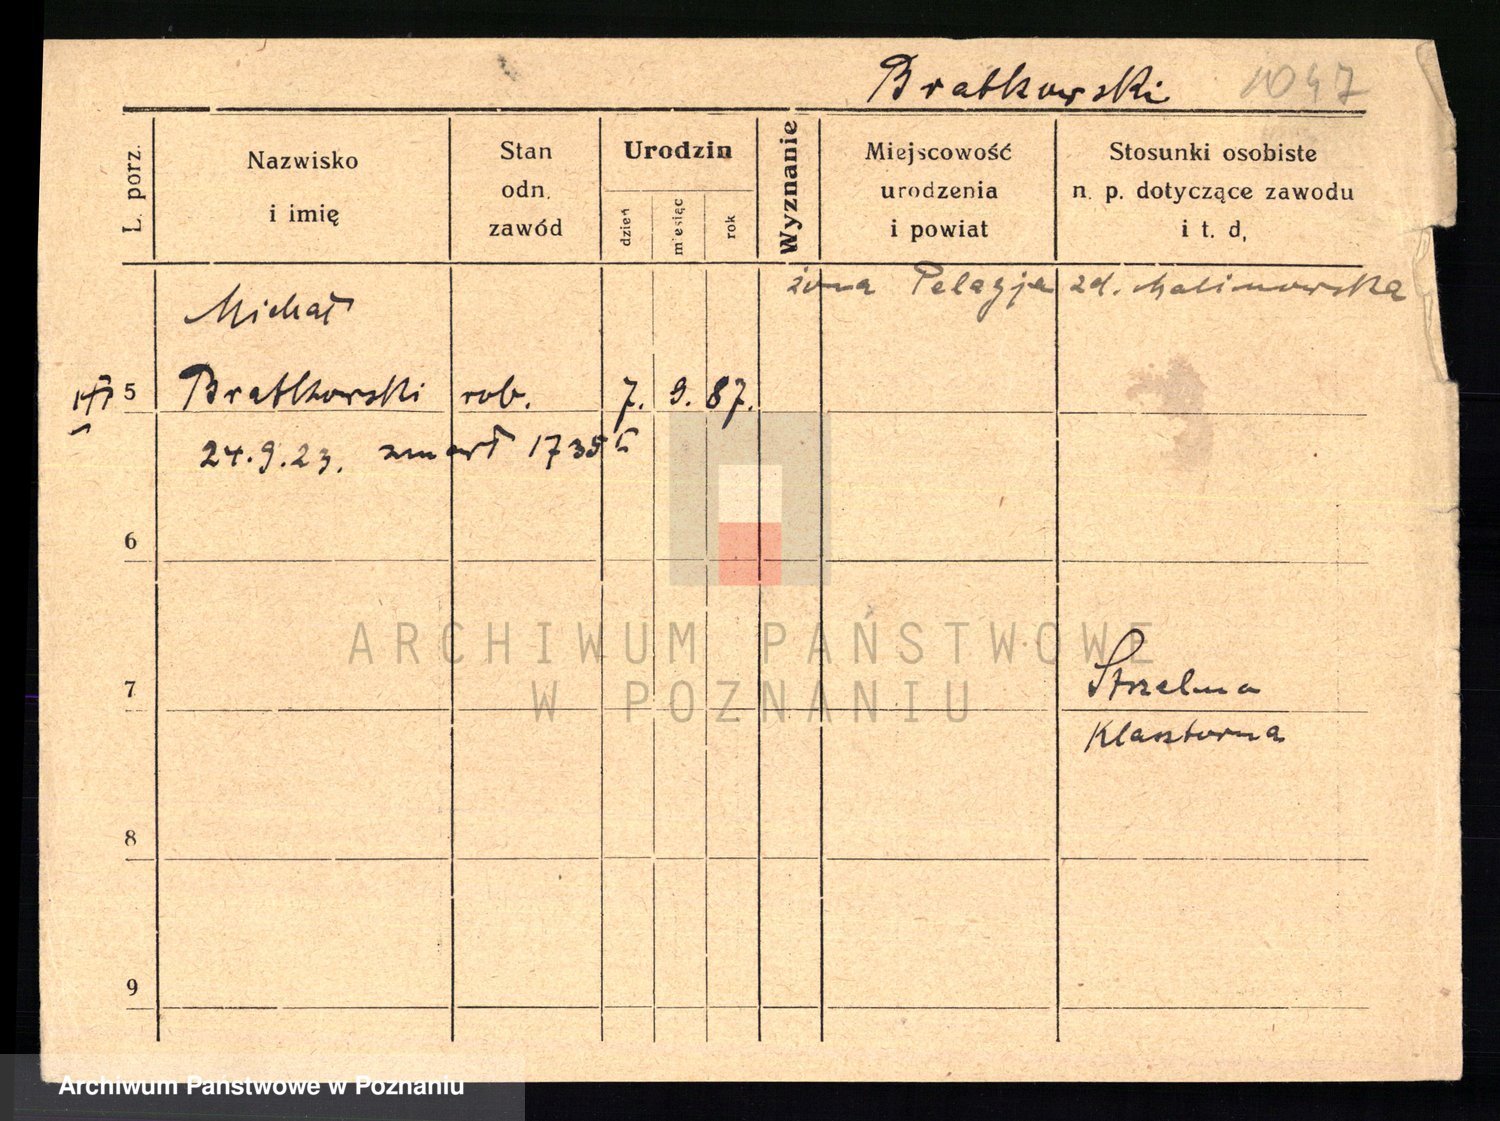 Bratkowski 1047
L. porz.
Nazwisko
i imię
Stan
odn.
zawód
Urodzin
dzień
miesiąc
rok
Wyznanie
Miejscowość
urodzenia
i powiat
Stosunki osobiste
n. p. dotyczące zawodu
i t. d,
żona Pelagja zd. Malinowska
Michał
5 Bratkowski rob. 7. 9. 87.
24.9.23. zmarł 1735
6
ARCHIWUM PAŃSTWOWE
W POZNANIU
7 Strzelno
Klasztorna
8
9
Archiwum Państwowe w Poznaniu